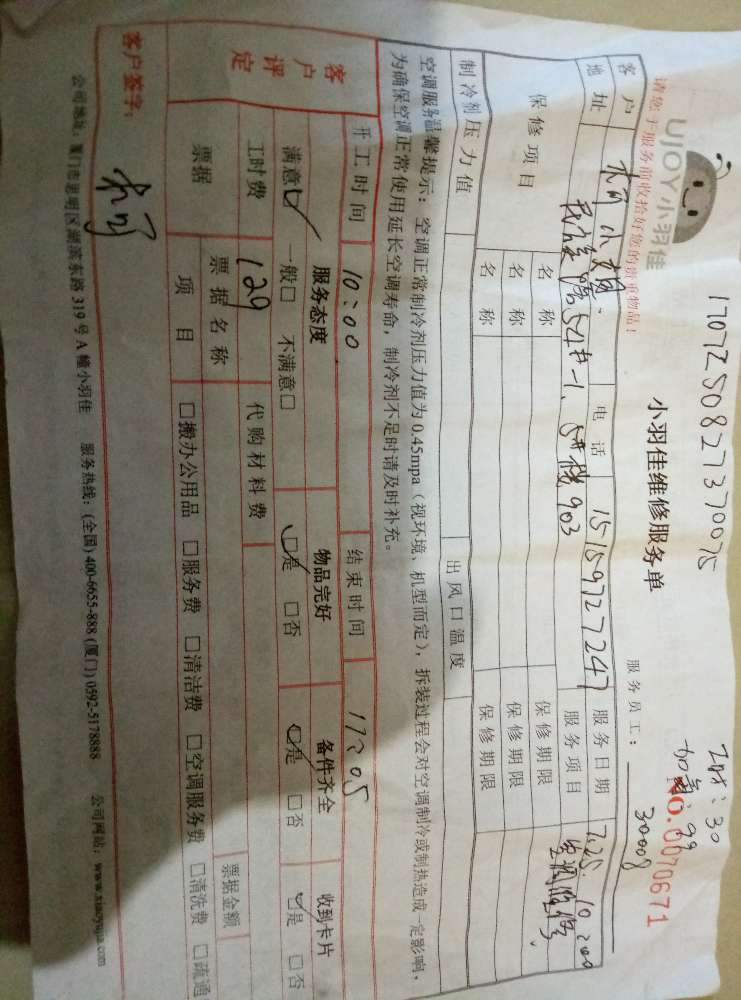 1707250827370075
工时:30
加氟:99
UJOY小羽佳
小羽佳维修服务单
NO.0070671
请您于服务前收拾好您的贵重物品!
服务员工: 30008
客户 小姐 电话 15159727247 服务日期 7.25. 10:00
地址 54#-1, 903 服务项目 空调维修
保修项目 名称 保修期限
名称 保修期限
名称 保修期限
制冷剂压力值 出风口温度
空调服务温馨提示:空调正常制冷剂压力值为0.45mpa(视环境、机型而定),拆装过程会对空调制冷或制热造成一定影响,
为确保空调正常使用延长空调寿命,制冷剂不足时请及时补充。
开工时间 10:00 结束时间 17:05
客户评定
服务态度 物品完好 备件齐全 收到卡片
满意☑ 一般□ 不满意□ ☑是 □否 ☑是 □否 ☑是 □否
工时费 129 代购材料费
票据 票据名称 票据金额
项目 □搬办公用品 □服务费 □清洁费 □空调服务费 □清洗费 □疏通
客户签字:
公司地址:厦门市思明区湖滨东路319号A幢小羽佳 服务热线:(全国)400-6655-888(厦门)0592-5178888 公司网站:www.xiaoyujia.com